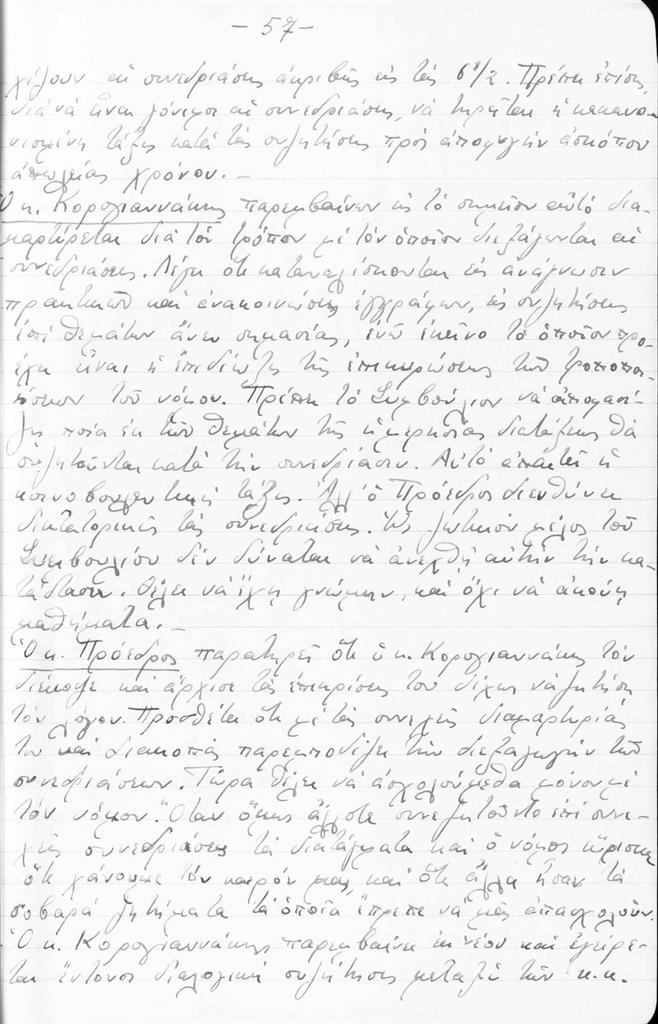 - 57 -
χίζουν αἱ συνεδριάσεις ἀκριβῶς εἰς τὰς 6 1/2. Πρέπει ἐπίσης,
διὰ νὰ εἶναι γόνιμοι αἱ συνεδριάσεις, νὰ τηρῆται ἡ κεκανο-
νισμένη τάξις κατὰ τὰς συζητήσεις πρὸς ἀποφυγὴν ἀσκόπου
ἀπωλείας χρόνου. -
Ὁ κ. Κορογιαννάκης παρεμβαίνων εἰς τὸ σημεῖον αὐτὸ δια-
μαρτύρεται διὰ τὸν τρόπον μὲ τὸν ὁποῖον διεξάγονται αἱ
συνεδριάσεις. Λέγει ὅτι καταναλίσκονται εἰς ἀνάγνωσιν
πρακτικῶν καὶ ἀνακοινώσεις ἐγγράφων, εἰς συζητήσεις
ἐπὶ θεμάτων ἄνευ σημασίας, ἐνῶ ἐκεῖνο τὸ ὁποῖον προ-
έχει εἶναι ἡ ἐπιδίωξις τῆς ἐπικυρώσεως τῶν τροποποι-
ήσεων τοῦ νόμου. Πρέπει τὸ Συμβούλιον νὰ ἀποφασί-
ζῃ ποῖα ἐκ τῶν θεμάτων τῆς ἡμερησίας διατάξεως θὰ
συζητοῦνται κατὰ τὴν συνεδρίασιν. Αὐτὸ ἀπαιτεῖ ἡ
κοινοβουλευτικὴ τάξις. Ἀλλ' ὁ Πρόεδρος διευθύνει
δικτατορικῶς τὰς συνεδριάσεις. Ὡς ζωτικὸν μέλος τοῦ
Συμβουλίου δὲν δύναται νὰ ἀνεχθῇ αὐτὴν τὴν κα-
τάστασιν. Θέλει νὰ ἔχῃ γνώμην, καὶ ὄχι νὰ ἀκούῃ
μαθήματα. -
Ὁ κ. Πρόεδρος παρατηρεῖ ὅτι ὁ κ. Κορογιαννάκης τὸν
διέκοψε καὶ ἄρχισε τὰς ἐπικρίσεις του δίχως νὰ ζητήσῃ
τὸν λόγον. Προσθέτει ὅτι μὲ τὰς συνεχεῖς διαμαρτυρίας
του καὶ διακοπὰς παρεμποδίζει τὴν διεξαγωγὴν τῶν
συνεδριάσεων. Τώρα θέλει νὰ ἀσχολούμεθα μόνον μὲ
τὸν νόμον. Ὅταν ὅμως ἄλλοτε συνεζητοῦντο ἐπὶ συνε-
χεῖς συνεδριάσεις τὰ διατάγματα καὶ ὁ νόμος εὕρισκε
ὅτι χάνουμε τὸν καιρόν μας, καὶ ὅτι ἄλλα ἦσαν τὰ
σοβαρὰ ζητήματα τὰ ὁποῖα ἔπρεπε νὰ μᾶς ἀπασχολοῦν.
Ὁ κ. Κορογιαννάκης παρεμβαίνει ἐκ νέου καὶ ἐγείρε-
ται ἔντονος διαλογικὴ συζήτησις μεταξὺ τῶν κ.κ.